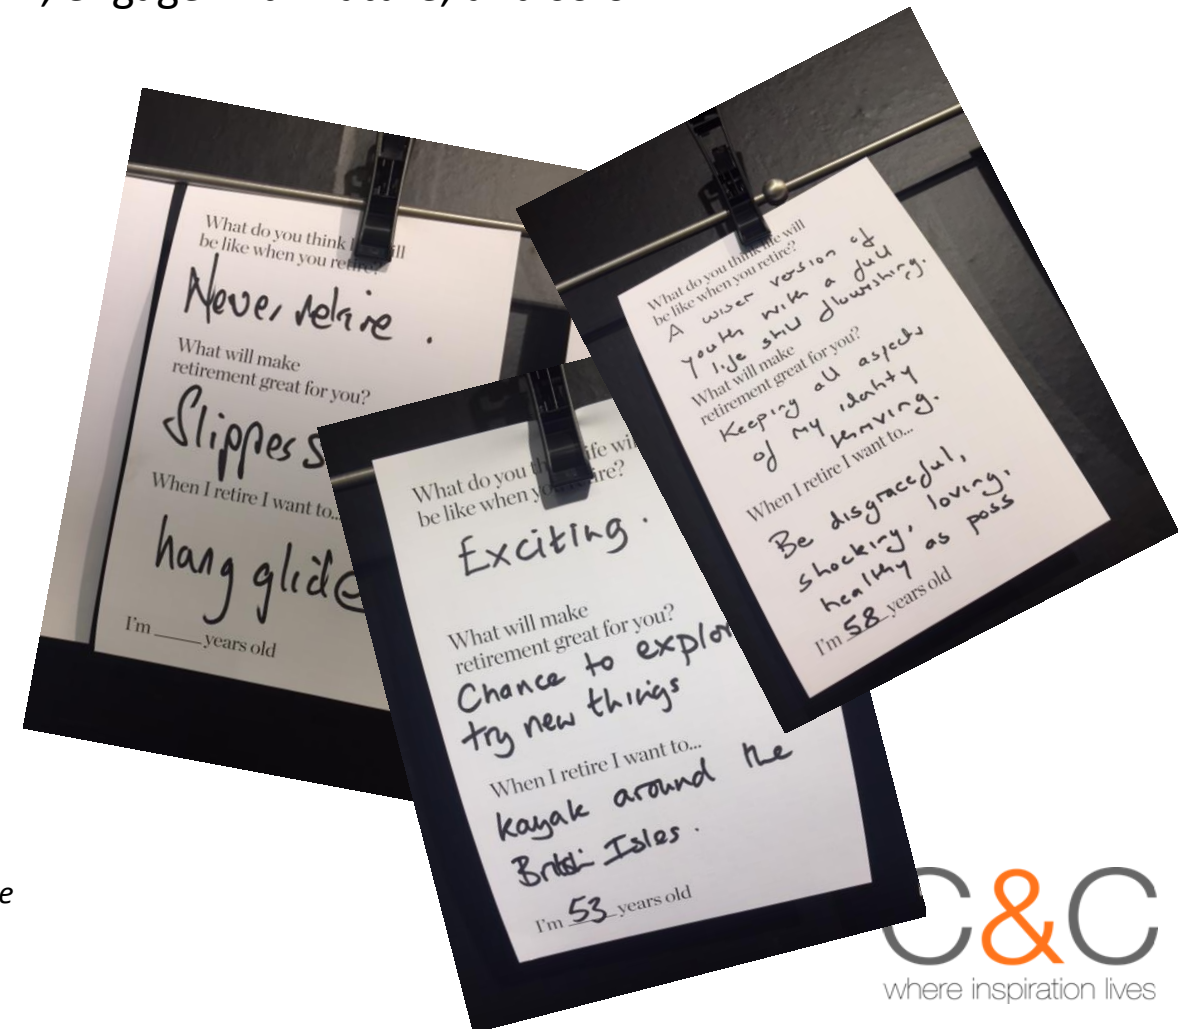 What do you think
be like when you retire?
Never retire.
What will make
retirement great for you?
Slippers
When I retire I want to...
hang glide
I'm ____ years old
What do you think life will
be like when you retire?
Exciting.
What will make
retirement great for you?
Chance to
try new things
When I retire I want to...
kayak around the
British Isles.
I'm 53 years old
What do you think life will
be like when you retire?
A wiser version of
youth with a full
life still flourishing.
What will make
retirement great for you?
Keeping all aspects
of my identity
thriving.
When I retire I want to...
Be disgraceful,
shocking, loving,
healthy as poss
I'm 58 years old
C&C
where inspiration lives